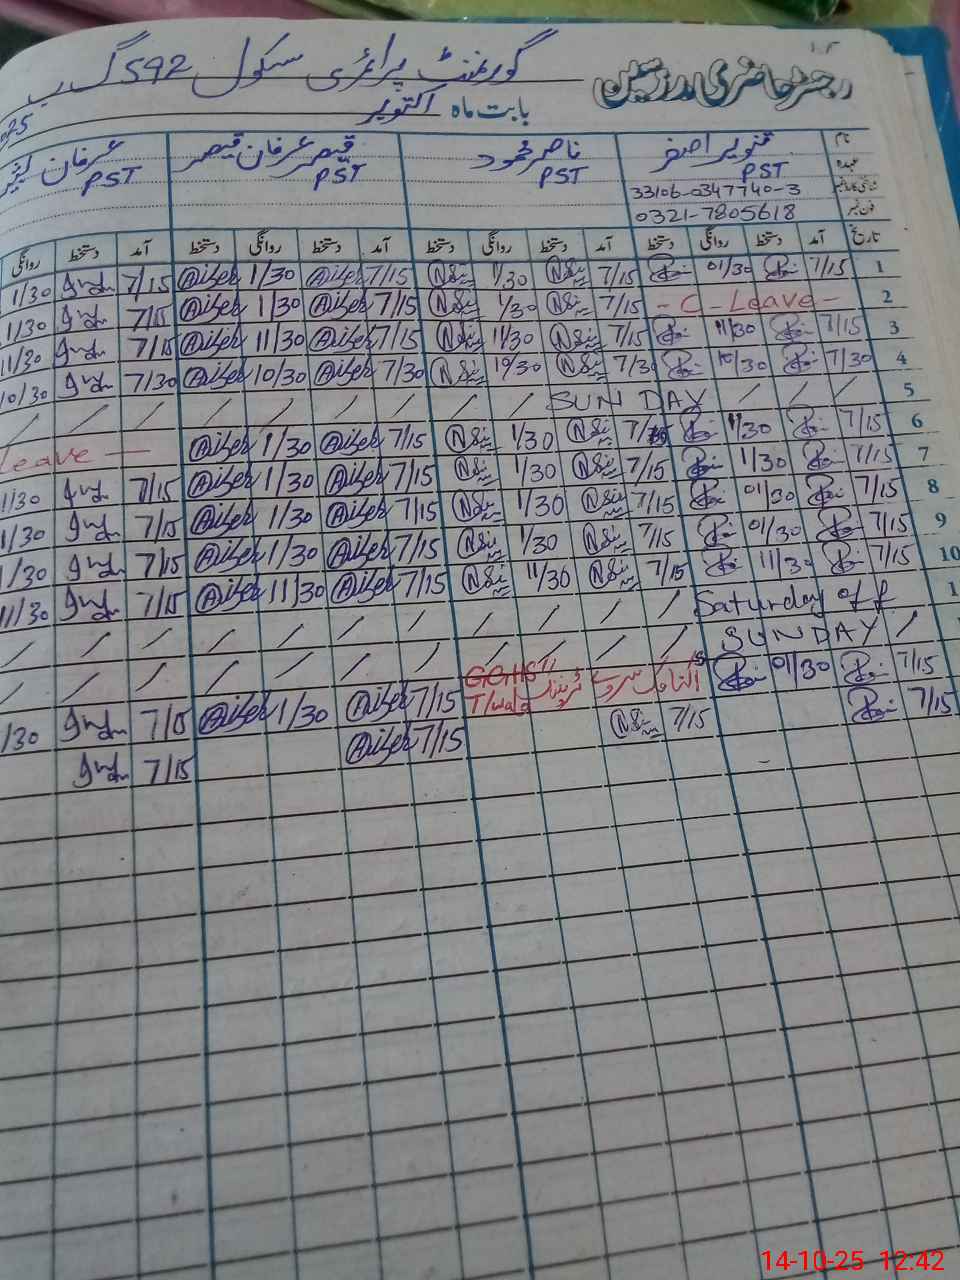 رجسٹر حاضری مدرسین
گورنمنٹ پرائمری سکول 592 گ ب
بابت ماہ اکتوبر
نام تنویر اصغر ناصر محمود قیصر عرفان قیصر عرفان
عہدہ PST PST PST PST
33106-0347740-3
فون نمبر 0321-7805618
تاریخ آمد دستخط روانگی دستخط آمد دستخط روانگی دستخط آمد دستخط روانگی دستخط آمد دستخط روانگی
1 7/15 01/30 7/15 1/30 7/15 1/30 7/15 1/30
2 - C - Leave - 7/15 1/30 7/15 1/30 7/15 1/30
3 7/15 11/30 7/15 11/30 7/15 11/30 7/15 11/30
4 7/30 10/30 7/30 10/30 7/30 10/30 7/30 10/30
5 / / / SUN DAY / / / / / / / /
6 7/15 1/30 7/15 1/30 7/15 1/30 Leave —
7 7/15 1/30 7/15 1/30 7/15 1/30 7/15 1/30
8 7/15 01/30 7/15 1/30 7/15 1/30 7/15 1/30
9 7/15 01/30 7/15 1/30 7/15 1/30 7/15 1/30
10 7/15 11/30 7/15 11/30 7/15 11/30 7/15 11/30
Saturday off / / / / / / / / / / /
/ SUNDAY / / / / / / / / / / /
7/15 01/30 سروے GGHS T/wala 7/15 1/30 7/15 1/30
7/15 7/15 7/15 7/15
14-10-25 12:42